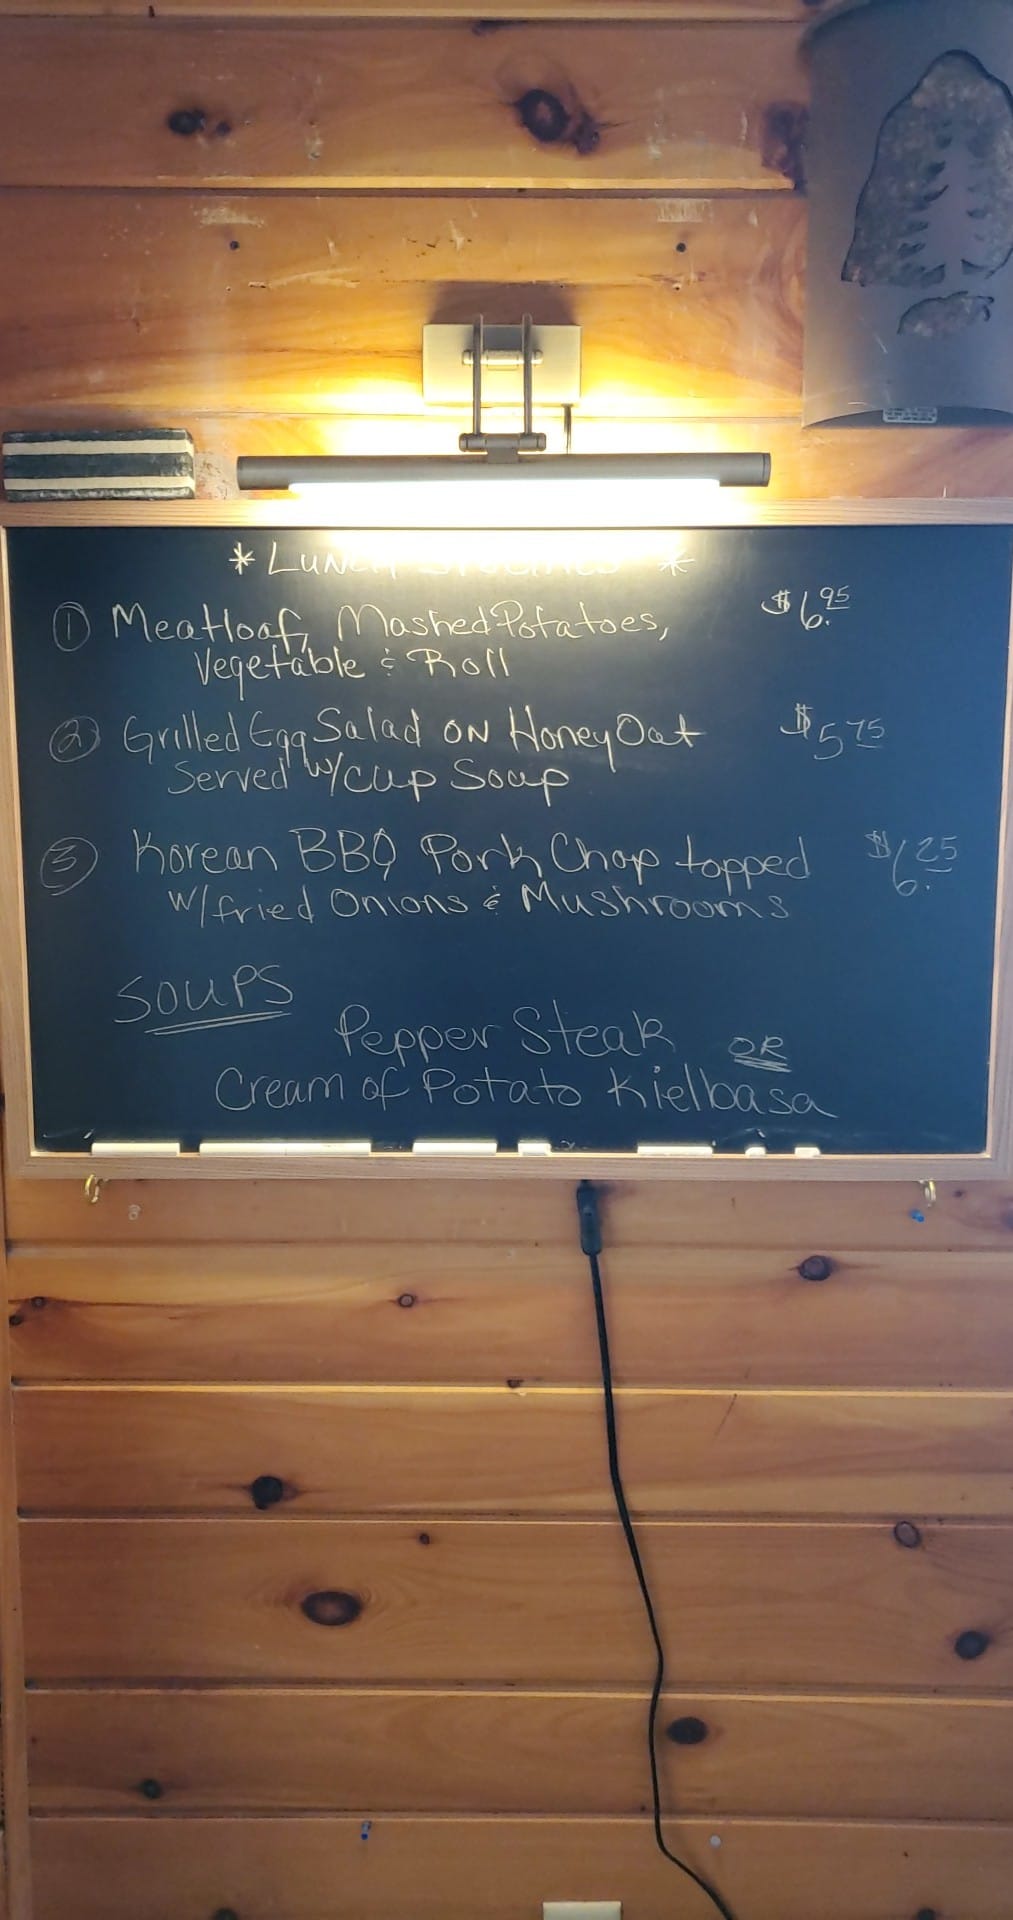 * LUNCH SPECIALS *
① Meatloaf, Mashed Potatoes, $6.95
Vegetable & Roll
② Grilled Egg Salad ON Honey Oat $5 75
Served w/cup Soup
③ Korean BBQ Pork Chop topped $6.25
w/fried Onions & Mushrooms
SOUPS
Pepper Steak OR
Cream of Potato Kielbasa